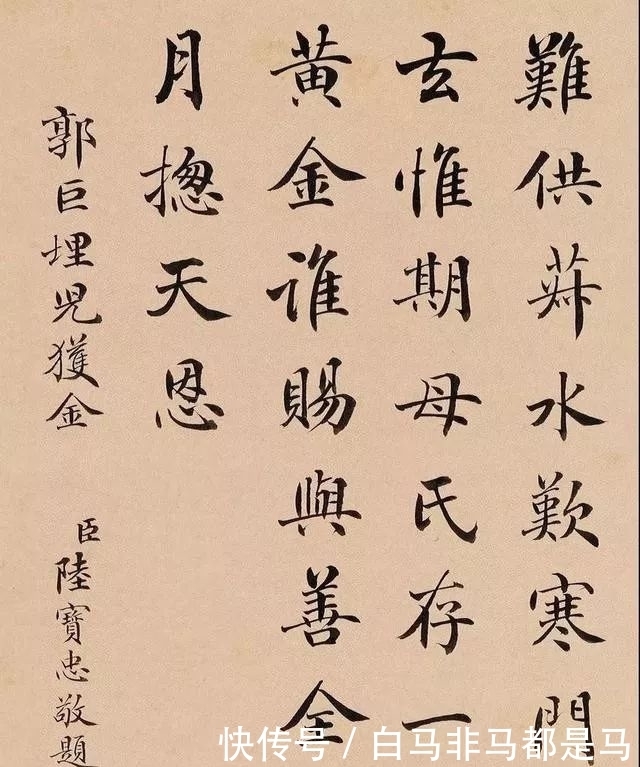 難供菽水歎寒門
去惟期母氏存一
黄金誰賜與善全
月揔天恩
郭巨埋児獲金
臣陸寶忠敬題
快传号/白马非马都是马